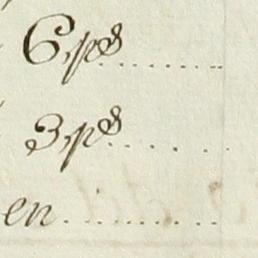 6,,pds
3,,pds
en